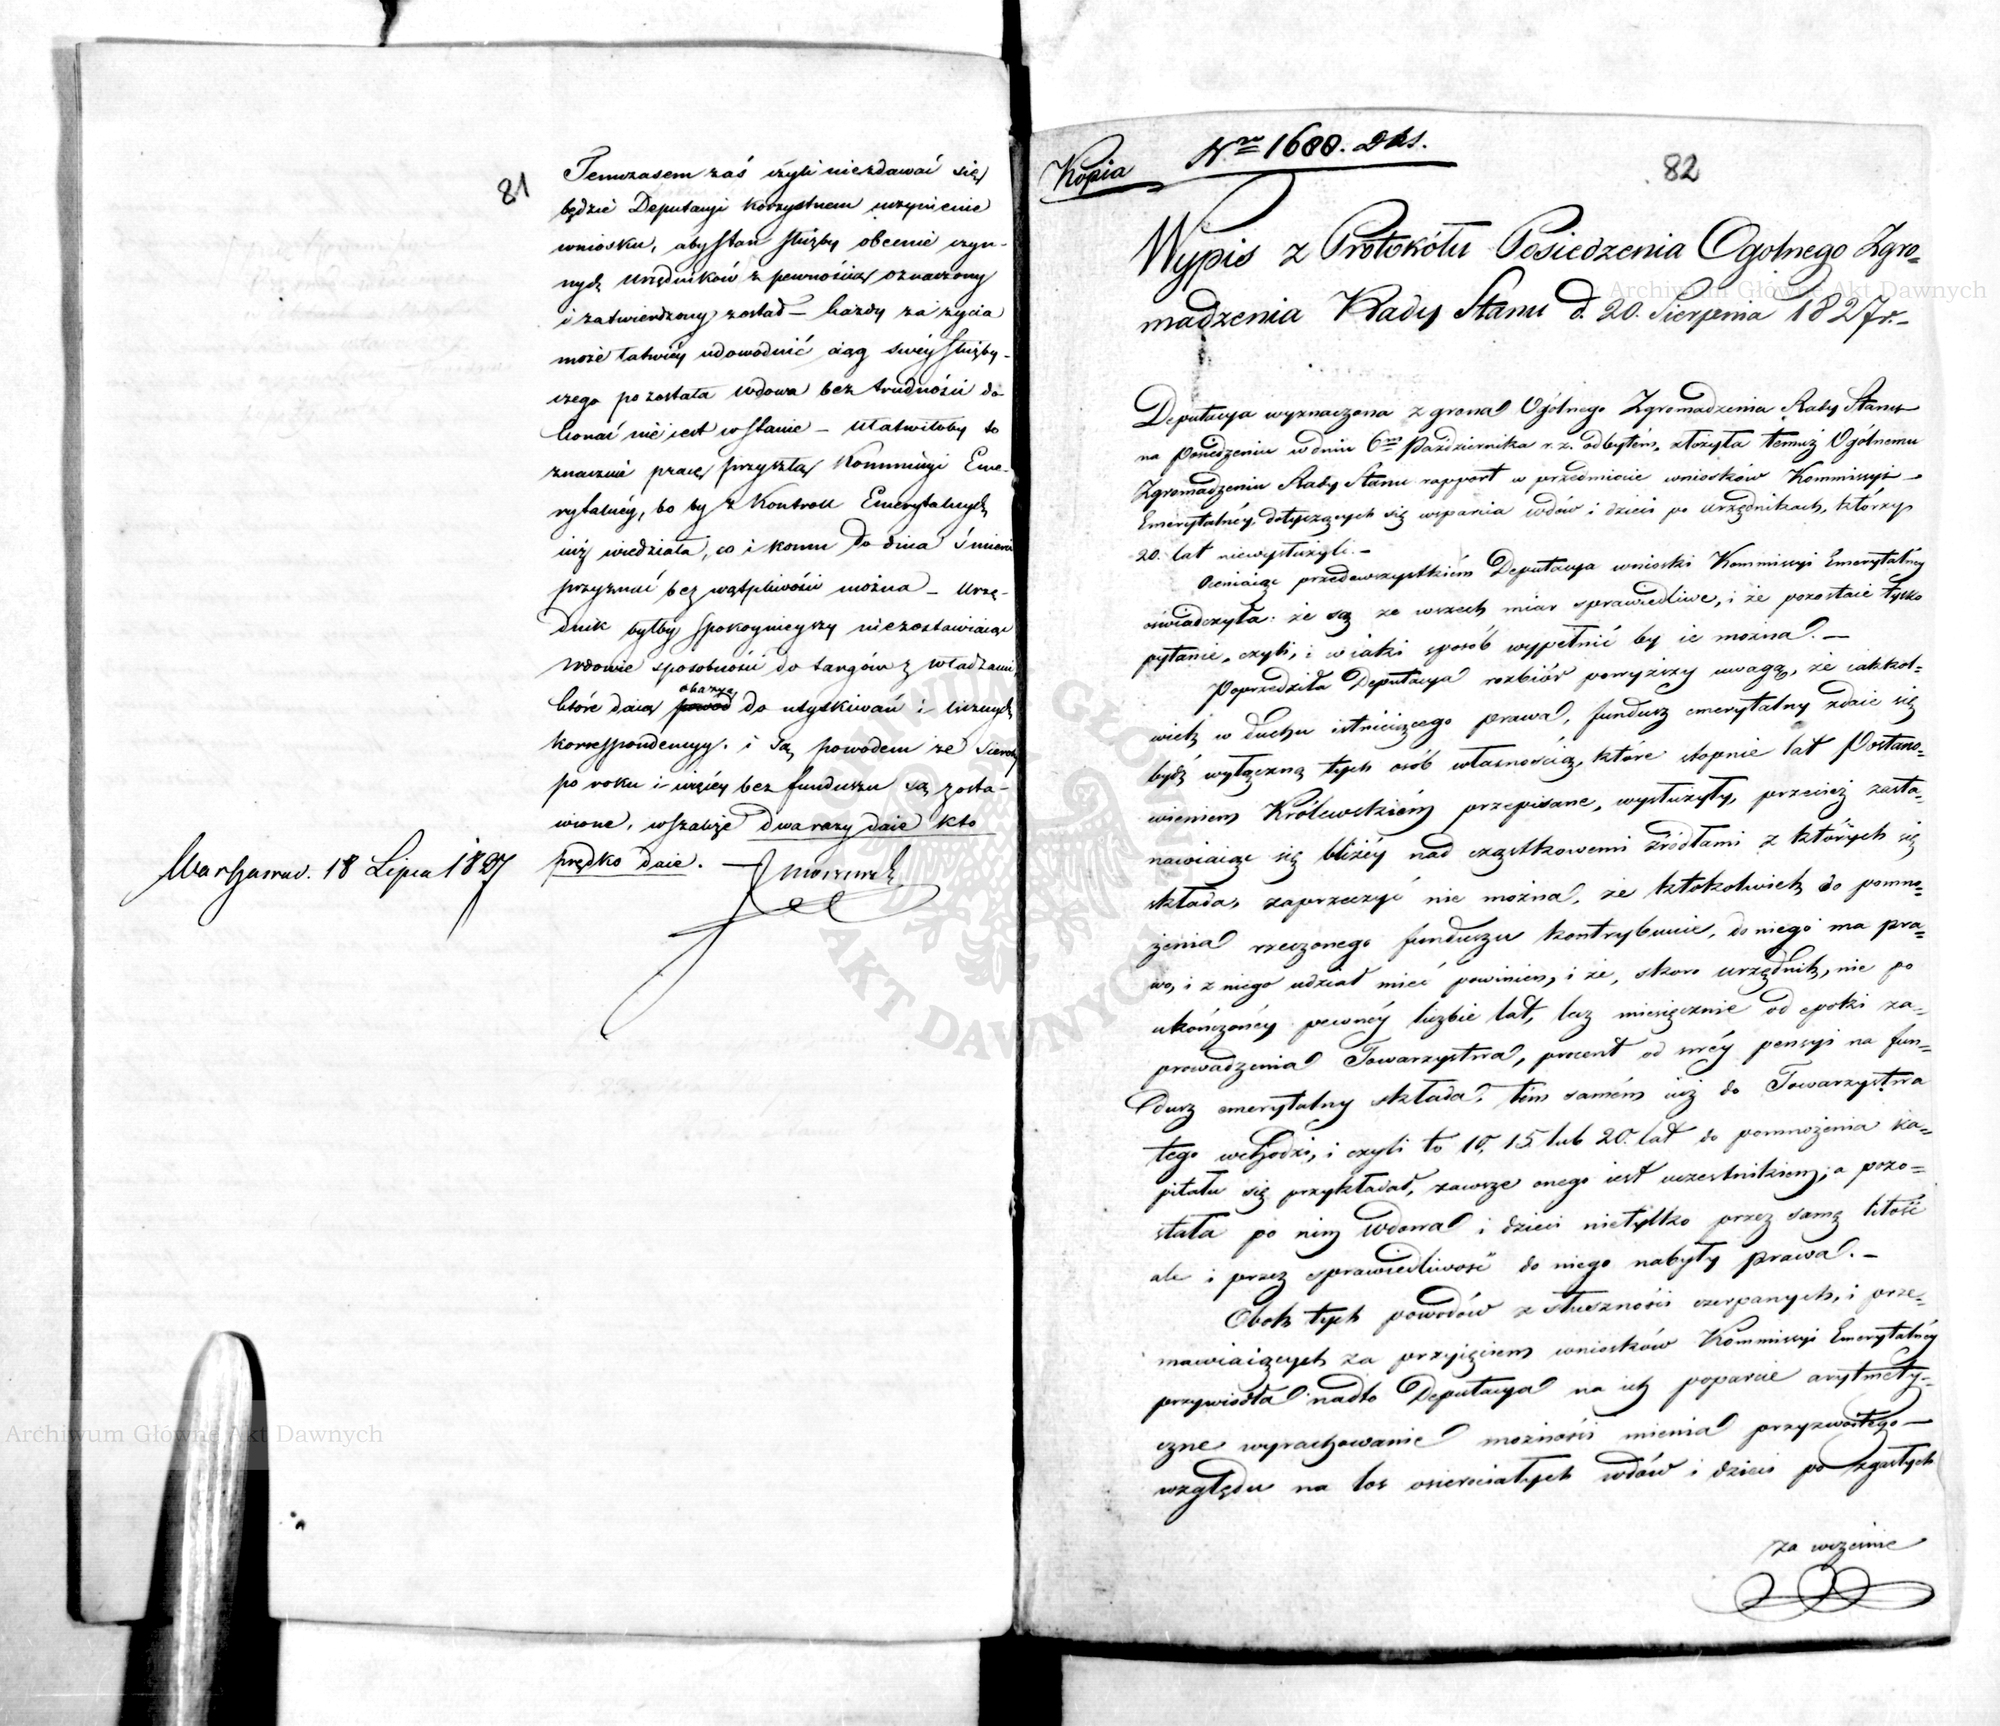 81
Temczasem zaś czyli niezdawać się
będzie Deputacyi korzystnem uczynienie
wniosku, aby stan służby obecnie czyn-
nych Urzędników z pewnością oznaczony
i zatwierdzony został – każdy za życia
może łatwiéy udowodnić ciąg swéy służby –
czego pozostała wdowa bez trudności do
konać nie iest w stanie – ułatwiłoby to
znacznie pracę przyszłą Kommissyi Eme-
rytalnéy, bo by z Kontroll Emerytalnych
iuż wiedziała, co i komu do dnia śmierci
przyznać bez wątpliwości można – Urzę-
dnik byłby spokoynieyszy niezostawiaiąc
Wdowie sposobności do targów z władzami,
które daią powód okazyę do utyskiwań i licznych
korrespondencyy. i są powodem że sieroty
po roku i więcéy bez funduszu są zosta-
wione, wszakże dwa razy daie kto
prędko daie. –
Warszawa. 18 Lipca 1827
Kopia
Nro 1688. Dks.
82
Wypis z Protokółu Posiedzenia Ogolnego Zgro-
madzenia Rady Stanu d. 20. Sierpnia 1827 r. –
Deputacya wyznaczona z grona Ogólnego Zgromadzenia Rady Stanu
na Posiedzeniu w dniu 6m Października r. z. odbytém, złożyła temuż Ogólnemu
Zgromadzeniu Rady Stanu rapport w przedmiocie wniosków Kommissyi –
Emerytalnéy, dotyczących się wsparcia wdów i dzieci po urzędnikach, którzy
20. lat niewysłużyli. –
Oceniaiąc przedewszystkiém Deputacya wnioski Kommissyi Emerytalnéy
oświadczyła: że są ze wszech miar sprawiedliwe, i że pozostaie tylko
pytanie, czyli, i w iaki sposób wypełnić by ie można. –
Poprzedziła Deputacya rozbiór powyższy uwagą, że iakkol-
wiek w duchu istnieiącego prawa, fundusz emerytalny zdaie się
bydź wyłączną tych osób własnością, które stopnie lat Postano-
wieniem Królewskiém przepisane, wysłużyły, przecież zasta-
nawiaiąc się bliżéy nad cząstkowemi źródłami z których się
składa, zaprzeczyć nie można, że ktokolwiek do pomno-
żenia rzeczonego funduszu kontrybuuie, do niego ma pra-
wo, i z niego udział mieć powinien, i że, skoro urzędnik, nie po
ukończonéy pewnéy liczbie lat, lecz miesięcznie od epoki za-
prowadzenia Towarzystwa, procent od swéy pensyi na fun-
dusz emerytalny składa, tém samém iuż do Towarzystwa
tego wchodzi, i czyli to 10, 15. lub 20. lat do pomnożenia ka-
pitału się przykładał, zawsze onego iest uczestnikiem; a pozo-
stała po nim wdowa i dzieci nietylko przez samą litość
ale i przez sprawiedliwość do niego nabyły prawa. –
Obok tych powodów z słuszności czerpanych, i prze-
mawiaiących za przyięciem wniosków Kommissyi Emerytalnéy
przywiodła nadto Deputacya na ich poparcie arytmety-
czne wyrachowanie możności mienia przyzwoitego –
względu na los osierociałych wdów i dzieci po zgasłych
Archiwum Główne Akt Dawnych
Archiwum Główne Akt Dawnych